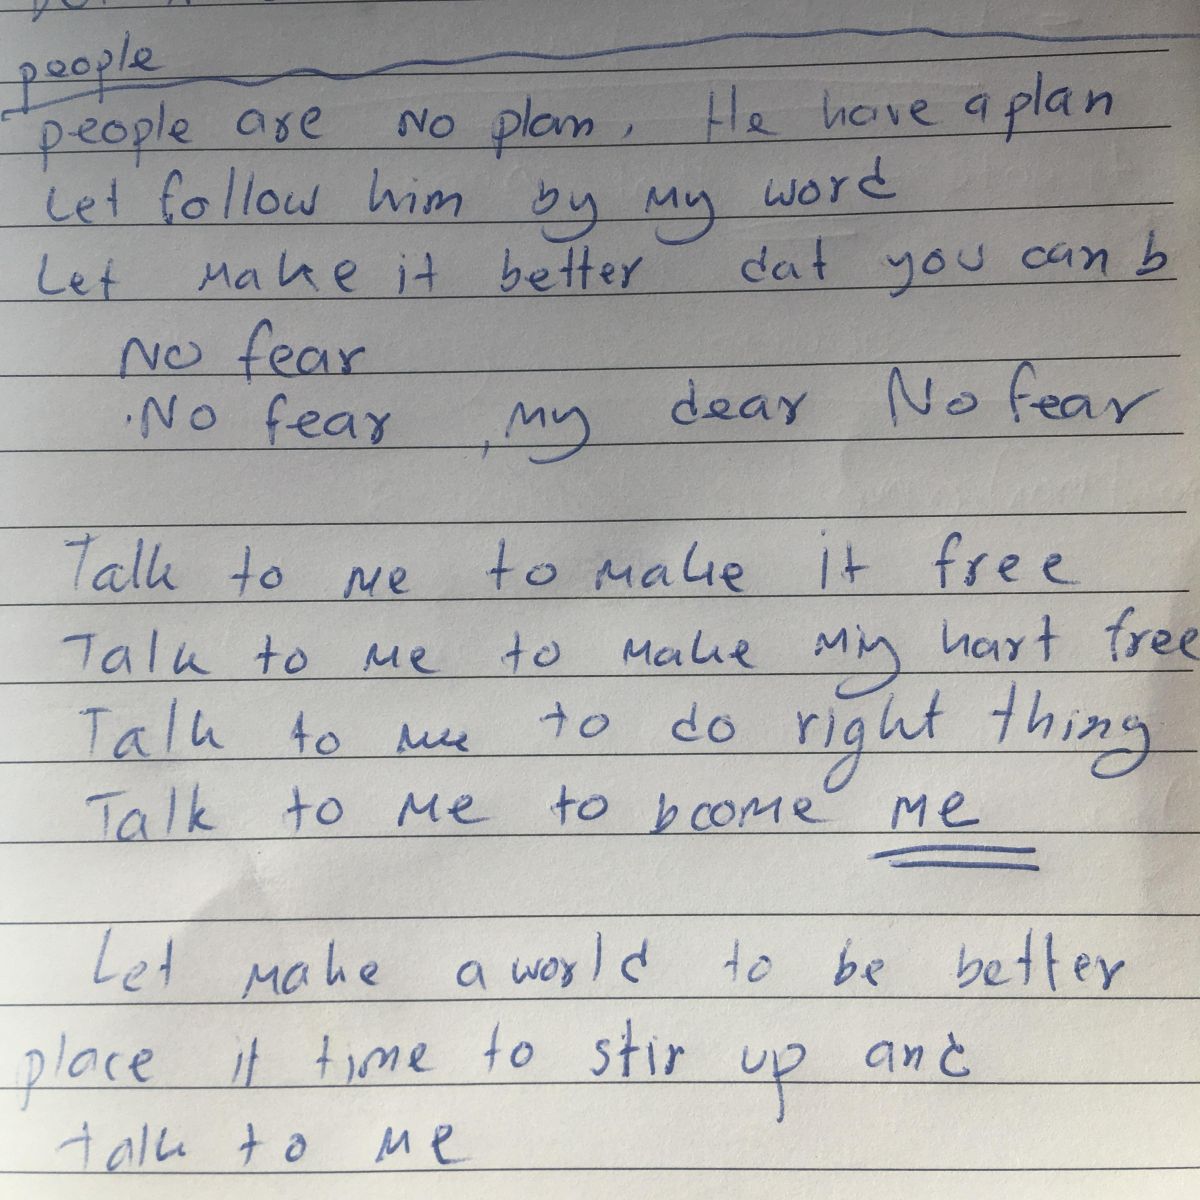 people
people are No plan, He have a plan
Let follow him by my word
Let make it better dat you can b
No fear
.No fear, my dear No fear
Talk to me to make it free
Talk to me to make my hart free
Talk to me to do right thing
Talk to me to bcome me
Let make a world to be better
place it time to stir up and
talk to me